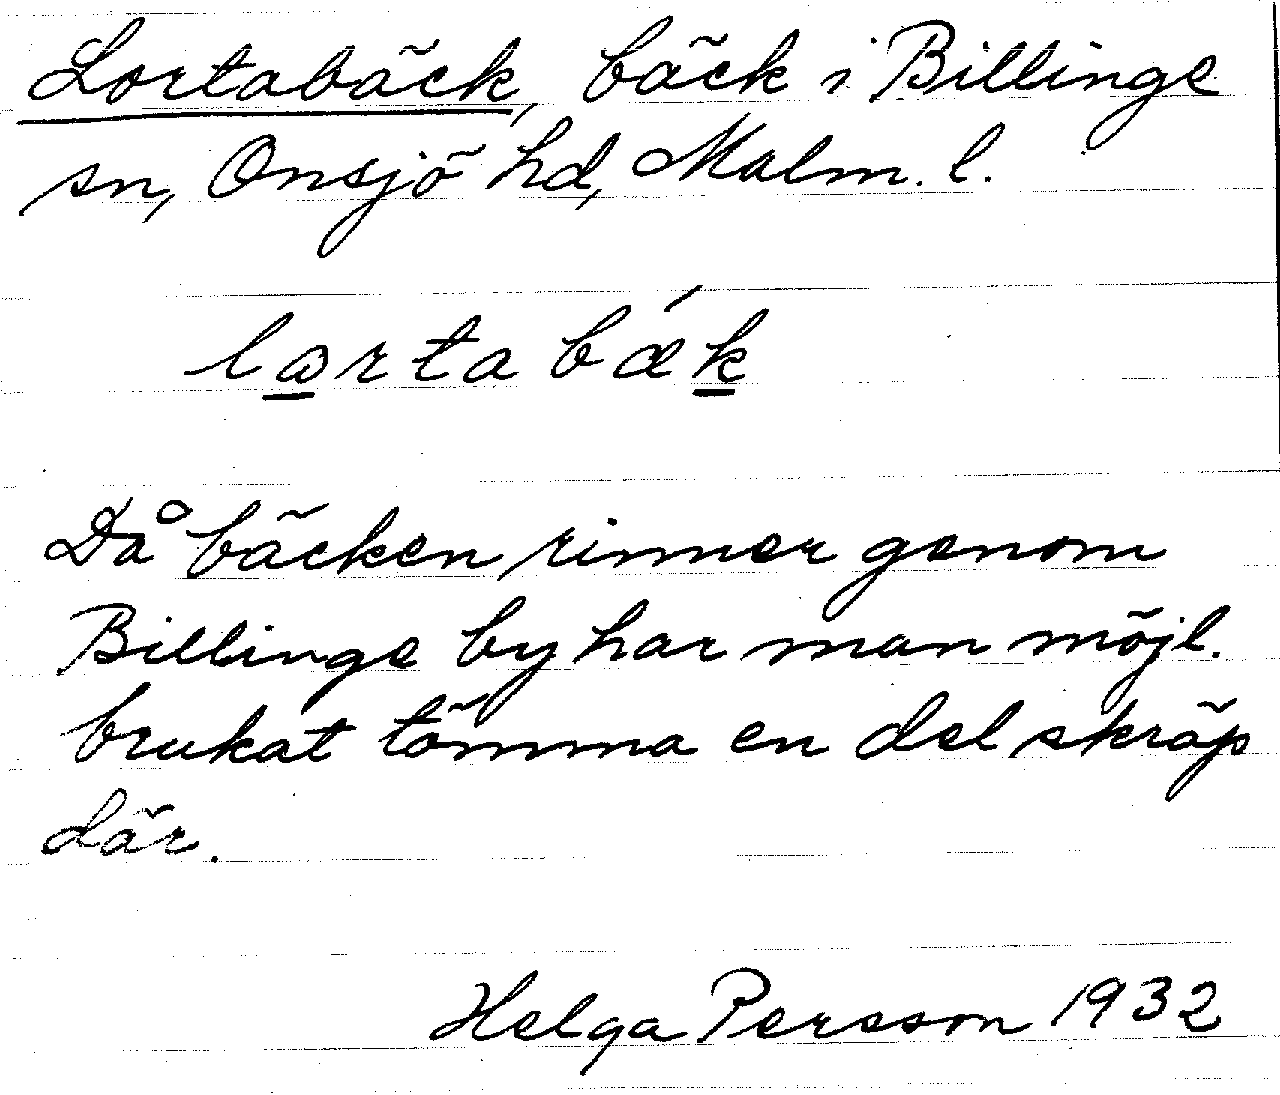 Lortabäck, bäck i Billinge
sn, Onsjö hd, Malm. l.
lorta bǽk
Då bäcken rinner genom
Billinge by har man möjl.
brukat tömma en del skräp
där.
Helga Persson 1932